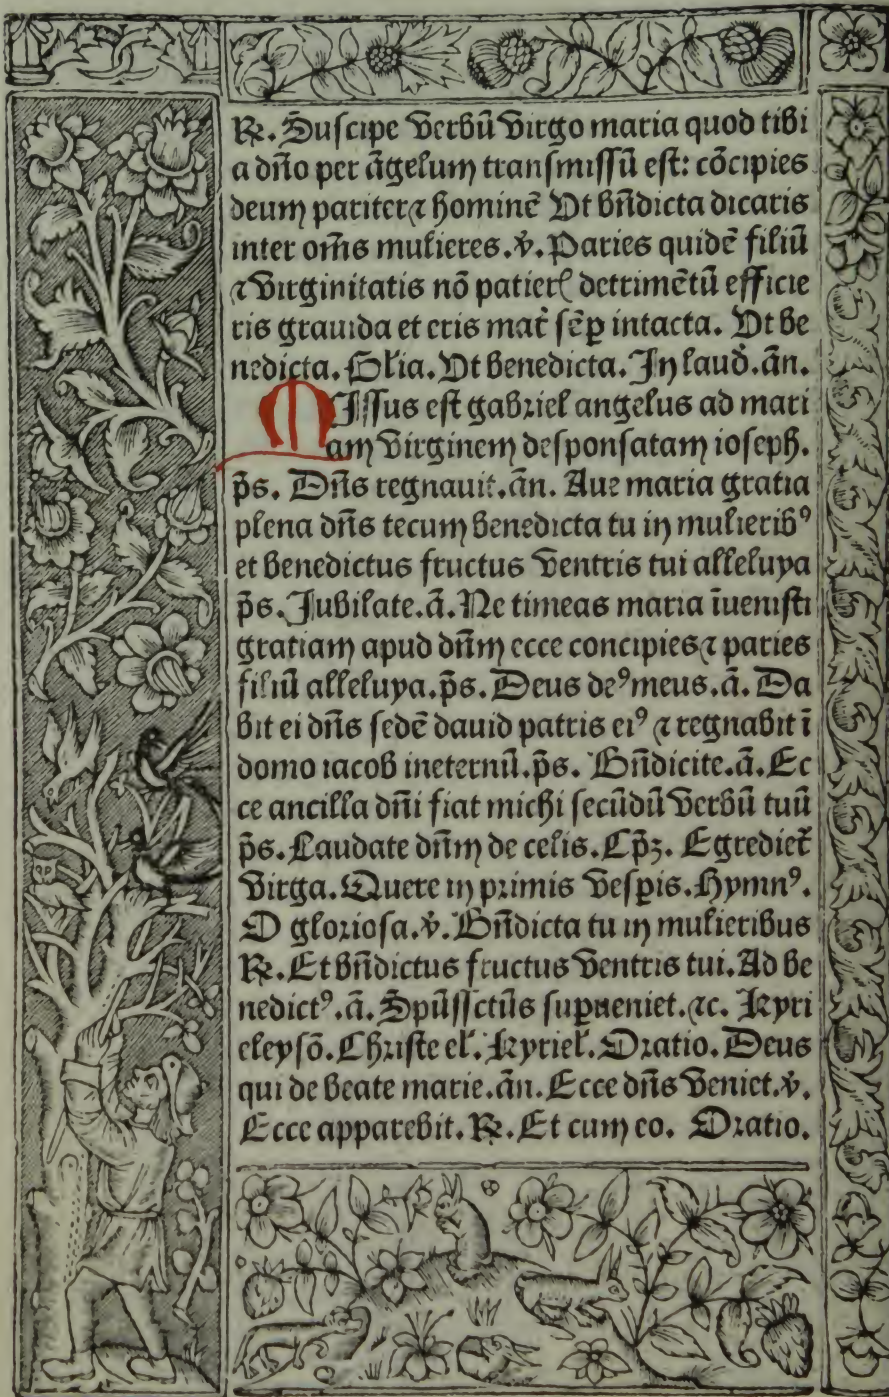 ℟. Suscipe verbū virgo maria quod tibi
a dño per āgelum transmissū est: cōcipies
deum pariter ⁊ hominē Vt bñdicta dicaris
inter oms̄ mulieres. ℣. Paries quidē filiū
⁊ virginitatis nō patierꝭ detrimētū efficie
ris grauida et eris mat̄ sēp intacta. Vt be
nedicta. Glia. Vt benedicta. In laud̄. an̄.
Missus est gabriel angelus ad mari
am virginem desponsatam ioseph.
p̄s. Dn̄s regnauit. an̄. Aue maria gratia
plena dn̄s tecum benedicta tu in mulierib⁹
et benedictus fructus ventris tui alleluya
p̄s. Jubilate. ā. Ne timeas maria īuenisti
gratiam apud dn̄m ecce concipies ⁊ paries
filiū alleluya. p̄s. Deus de⁹ meus. ā. Da
bit ei dn̄s sedē dauid patris ei⁹ ⁊ regnabit ī
domo iacob ineternū. p̄s. Bn̄dicite. ā. Ec
ce ancilla dn̄i fiat michi secūdū verbū tuū
p̄s. Laudate dn̄m de celis. Cp̄ꝫ. Egrediet̄
virga. Quere in primis vesp̄is. Hymn⁹.
O gloriosa. ℣. Bn̄dicta tu in mulieribus
℟. Et bn̄dictus fructus ventris tui. Ad be
nedict⁹. ā. Spūssctūs sup̄ueniet. ⁊c. Kyri
eleysō. Christe el̄. Kyriel̄. Oratio. Deus
qui de beate marie. an̄. Ecce dn̄s veniet. ℣.
Ecce apparebit. ℟. Et cum eo. Oratio.